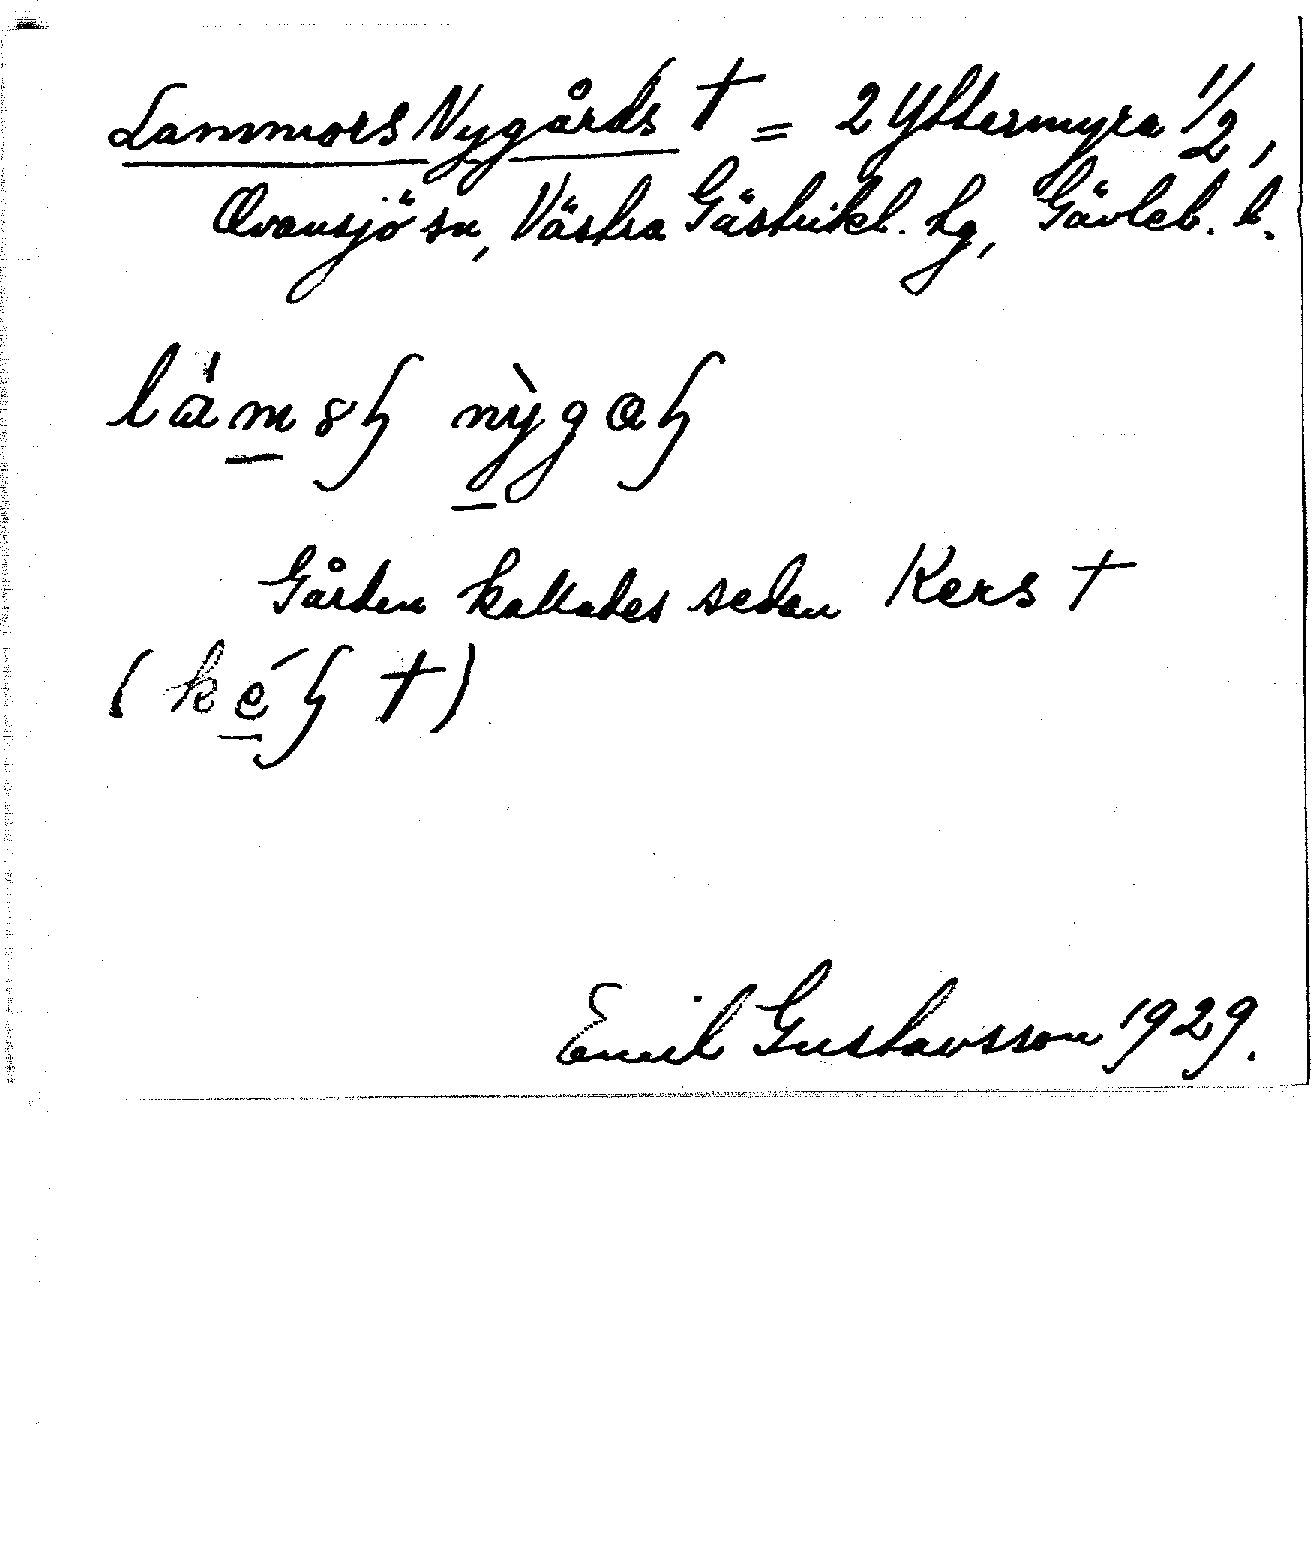 Lammors Nygårds † = 2 Yttermyra 1/2,
Ovansjö sn, Västra Gästrikl. hg, Gävleb. l.
Gården kallades sedan Kers †
Emil Gustavsson 1929.